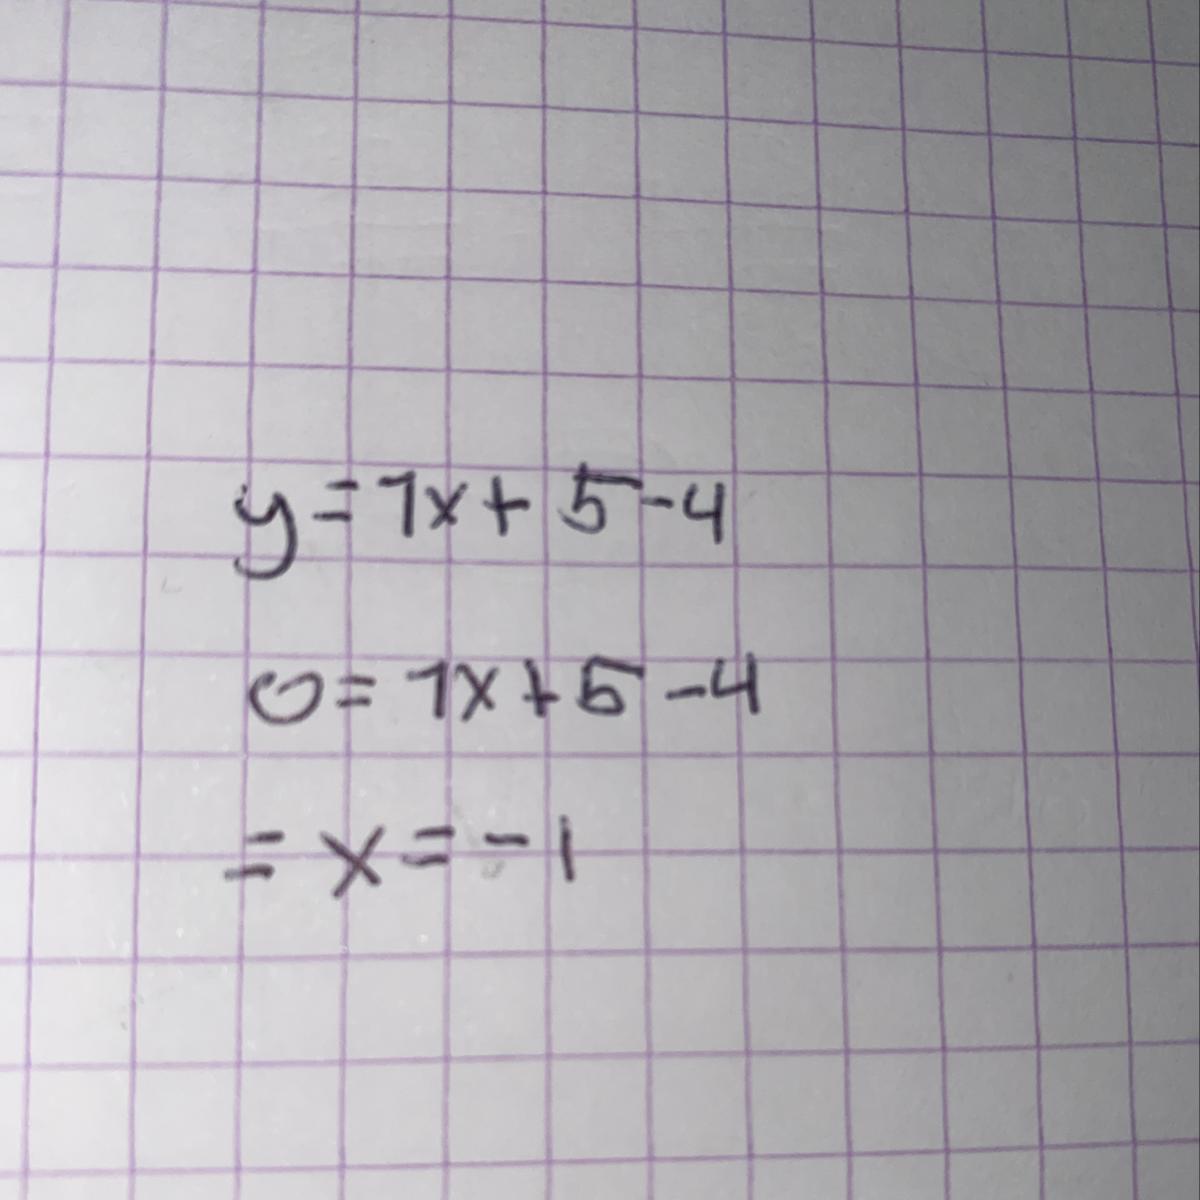 y = 1x + 5 - 4
0 = 1x + 5 - 4
= x = - 1